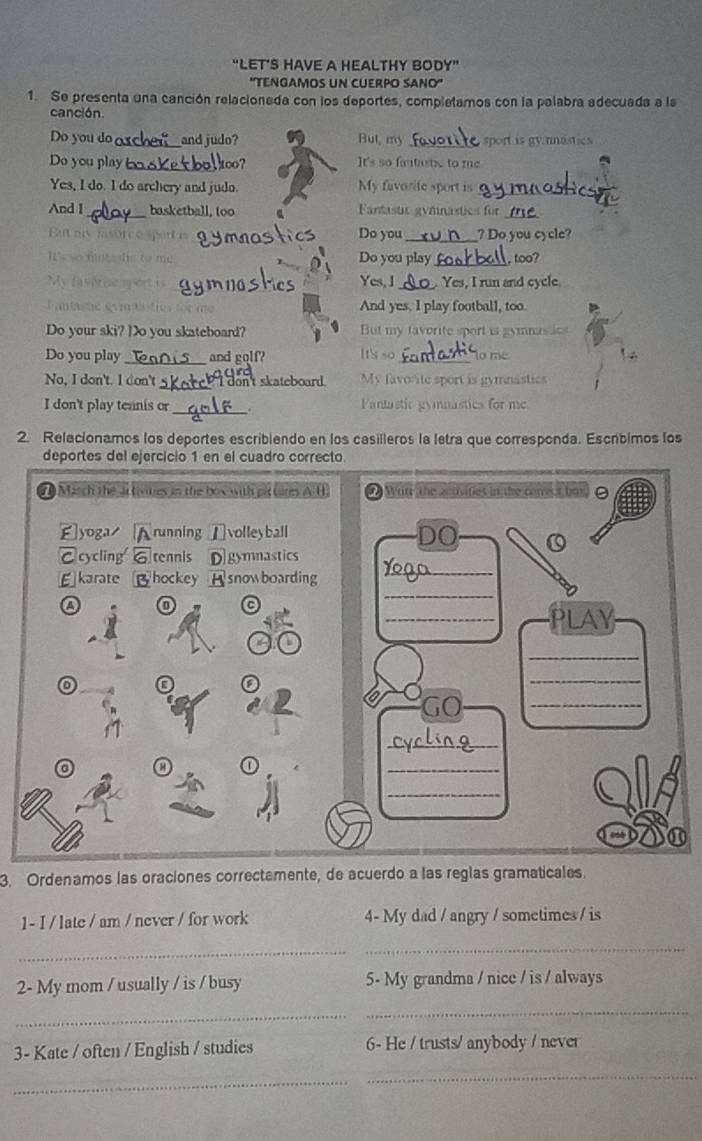 "LET'S HAVE A HEALTHY BODY"
"TENGAMOS UN CUERPO SANO"
1. Se presenta una canción relacionada con los deportes, completamos con la palabra adecuada a la
canción.
Do you do archeri and judo?
Do you play basketball too?
Yes, I do. I do archery and judo.
And I play basketball, too
But my favorite sport is gymnostics
It's so fantastic to me
My favorite sport is gymnostics
Fantastic gymnastics for me
Do your ski? Do you skateboard?
Do you play Tennis and golf?
No, I don't. I don't skateboard I don't skateboard.
I don't play tennis or golf.
But, my favorite sport is gymnastics
It's so fantastic to me
My favorite sport is gymnastics
Fantastic gymnastics for me
Do you run? Do you cycle?
Do you play football, too?
Yes, I do. Yes, I run and cycle.
And yes, I play football, too.
But my favorite sport is gymnastics
It's so fantastic to me.
My favorite sport is gymnastics
Fantastic gymnastics for me.
2. Relacionamos los deportes escribiendo en los casilleros la letra que corresponda. Escribimos los
deportes del ejercicio 1 en el cuadro correcto.
1 Match the activities in the box with pictures A-H.
yoga A running I volleyball
C cycling G tennis D gymnastics
E karate B hockey H snowboarding
A D C
D E F
G H I
2 Write the activities in the correct box.
DO
Yoga
PLAY
GO
cycling
3. Ordenamos las oraciones correctamente, de acuerdo a las reglas gramaticales.
1- I / late / am / never / for work
2- My mom / usually / is / busy
3- Kate / often / English / studies
4- My dad / angry / sometimes / is
5- My grandma / nice / is / always
6- He / trusts/ anybody / never